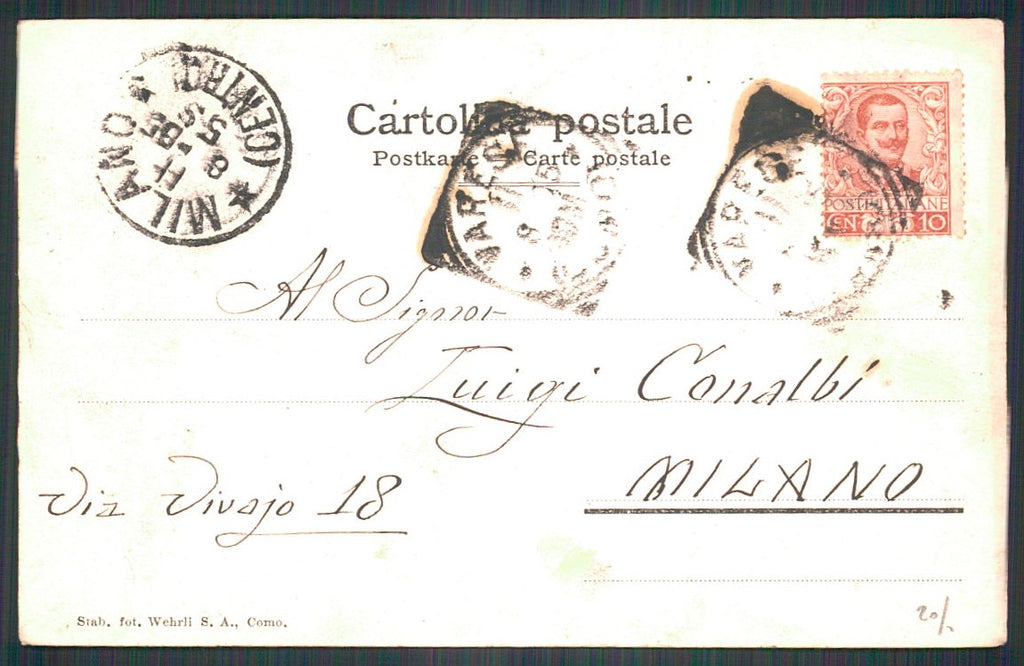 MILANO (CENTRO)
8 5 S
Cartolina postale
Postkarte – Carte postale
POSTE ITALIANE
CEN 10
Al Signor
Luigi Conalbi
MILANO
Via Vivajo 18
Stab. fot. Wehrli S. A., Como.
20/